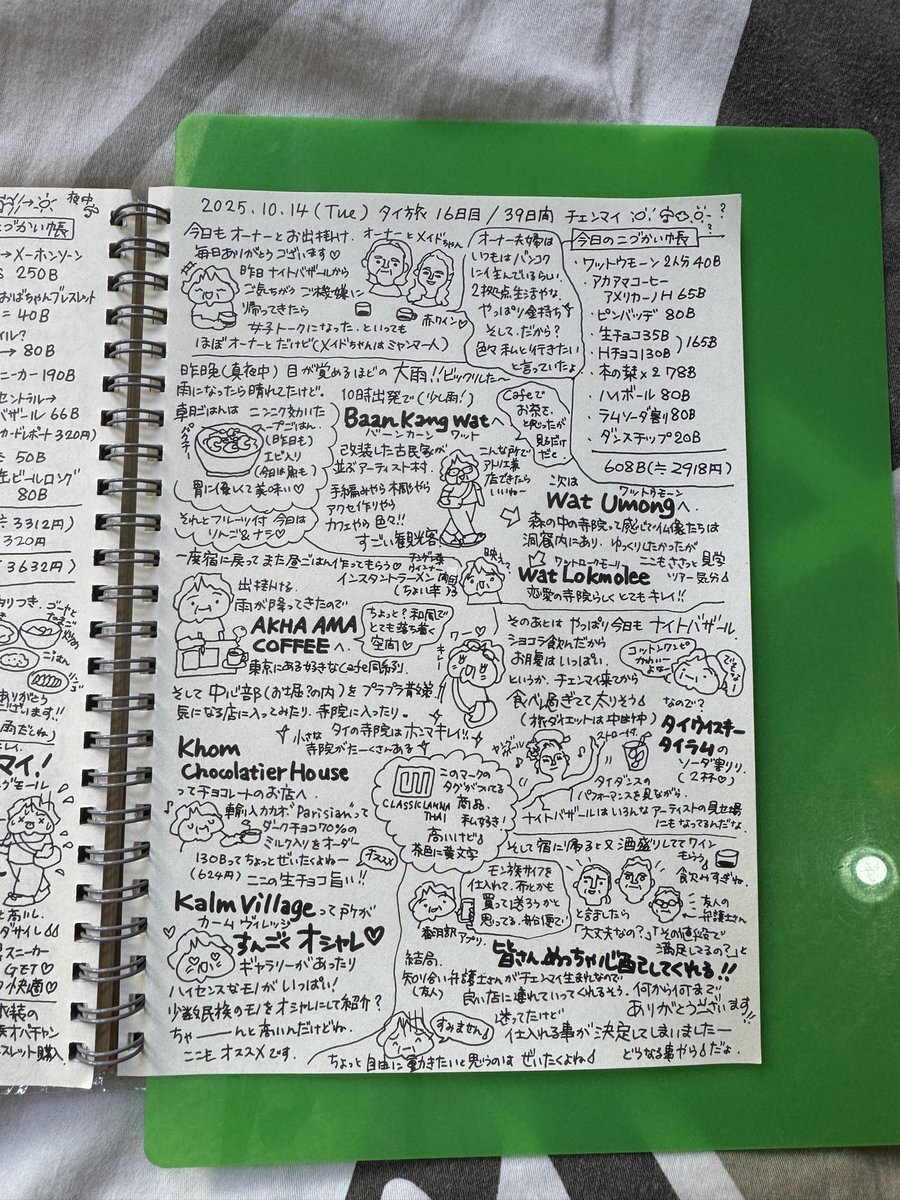 2025.10.14(Tue) タイ旅 16日目/39日間 チェンマイ ?
今日も オーナーとお出掛け。
毎日ありがとうございます♡
昨日 ナイトバザールから
ご気ちがう ご機嫌に
帰ってきたら
女子トークになった。といっても
ほぼオーナーとだけど(メイドちゃんはミャンマー人)
オーナーとメイドちゃん
赤ワイン♡
オーナー夫婦は
いつもはバンコク
に住んでいるらしい
2拠点生活やな。
やっぱり金持ち
そして、だから?
色々私と行きたい
と言っていたよ
今日のこづかい帳
・ワットウモーン 2人分 40B
・アカアマコーヒー
アメリカーノH 65B
・ピンバッヂ 80B
・生チョコ 35B
・Hチョコ 130B )165B
・本の栞×2 78B
・ハイボール 80B
・ラムソーダ割り 80B
・ダンスチップ 20B
608B(≒2918円)
昨日晩(真夜中) 目が覚めるほどの 大雨!!ビックリした〜
雨になったら晴れてたけど。
朝ごはんは ニンニク効いた
スープごはん。
(昨日も)
エビ入り
(今日は肉も)
パクチー
胃に優しくて美味い♡
それとフルーツ付 今日は
りんご&ナシ♡
10時出発で(少し雨!)
Baan Kang Watへ
バーン カーン ワット
改装した古民家が
並ぶアーティスト村。
手編みやら木彫やら
アクセ作りやら
カフェやら色々!!
すごい観光客
こんな所で
アトリエ兼
店できたら
いいねー
Cafeで
お茶で。
と思ったが
見るだけ
だと。
次は
ワットウモーン
Wat Umongへ.
森の中の寺院って感じで仏像たちは
洞窟内にあり。ゆっくりしたかったが
ここもささっと見学
ツアー気分
ワットロークモーリー
Wat Lokmolee
恋愛の寺院らしく とてもキレイ!!
一度宿に戻ってまた昼ごはん作ってもらう♡
インスタントラーメン
(ちょい辛)
出掛ける。
雨が降ってきたので
AKHA AMA
COFFEE へ
東京にある好きなCafe同系列
ちょっと?和風で
とても落ち着く
空間♡
そして 中心部(お堀の内)をプラプラ散策。
気になる店に入ってみたり。寺院に入ったり。
小さな タイの寺院はホンマキレイ!!
寺院がたーくさんある
ワー♡
キレイ
そのあとは やっぱり今日も ナイトバザール.
ショコラ飲んだから
お腹はいっぱい。
というか、チェンマイ来てから
食べ過ぎてて太りそう
(旅ダイエットは中断中)
なので?
コットンワンピ
かわいー
よなー
タイウイスキー
タイラムの
ソーダ割り。
(2杯♡)
ストロー付。
タイダンスの
パフォーマンスを見ながら。
ナイトバザールはいろんなアーティストの見せ場
にもなってるんだな。
Khom
Chocolatier House
ってチョコレートのお店へ
輸入カカオ"Parisian"って
ダークチョコ70%の
ミルク入りをオーダー
130Bってちょっとぜいたくよねー
(624円) ここの生チョコ旨い!!
オススメ
このマークの
タグがついてる
CLASSIC LANNA
THAI
商品。
私好き!
高いけど
茶色に黄文字
Kalm Villageって所が
カーム ヴィレッジ
すんごく オシャレ♡
ギャラリーがあったり
ハイセンスなモノがいっぱい!
少数民族のモノをオシャレにして紹介?
ちゃーーーんと高いんだけどね。
ここもオススメです。
そして宿に帰ると又酒盛りしててワイン
もらう
飲みすぎね。
モン族サイフを
仕入れて、布とかも
買って送ろうかと
思ってる。船便で
翻訳アプリ。
と言いましたら
友人の
弁護士さん
「大丈夫なの?」「その値段で
満足してるの?」と
皆さん めっちゃ心配してくれる!!
結局、
知り合い弁護士さんがチェンマイ生まれなので
(友人) 良い店に連れていってくれるそう。何から何まで
ありがとう
ございます!!
迷ってたけど
仕入れる事が 決定してしまいましたー
どうなる事やら だよ。
すみません
ちょっと 自由に動きたいと思うのは ぜいたくよね
夜中
こづかい帳
→メーホンソン
250B
おばちゃんブレスレット
= 40B
→ 80B
スニーカー 190B
セントラル→
バザール 66B
カードレポート 320円)
≒ 50B
缶ビールロング
80B
≒ 3312円
320円
(3632円)
ごはん
ありがとう
ございます!!
マイ!
スニーカー
GET♡
快適♡